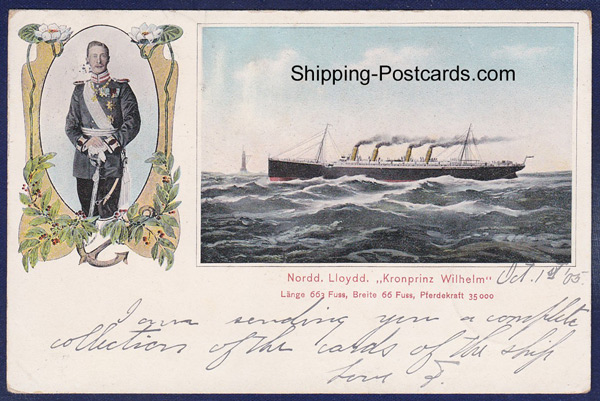 Shipping-Postcards.com
Nordd. Lloydd. „Kronprinz Wilhelm" Oct. 1st '05.
Länge 663 Fuss, Breite 66 Fuss, Pferdekraft 35000
I am sending you a complete
collection of the cards of the ship
Love F.